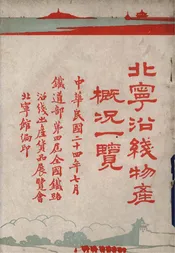 北寧沿綫物產
概況一覽
中華民國二十四年七月
鐵道部第四屆全國鐵路
沿綫出產貨品展覽會
北寧館編印